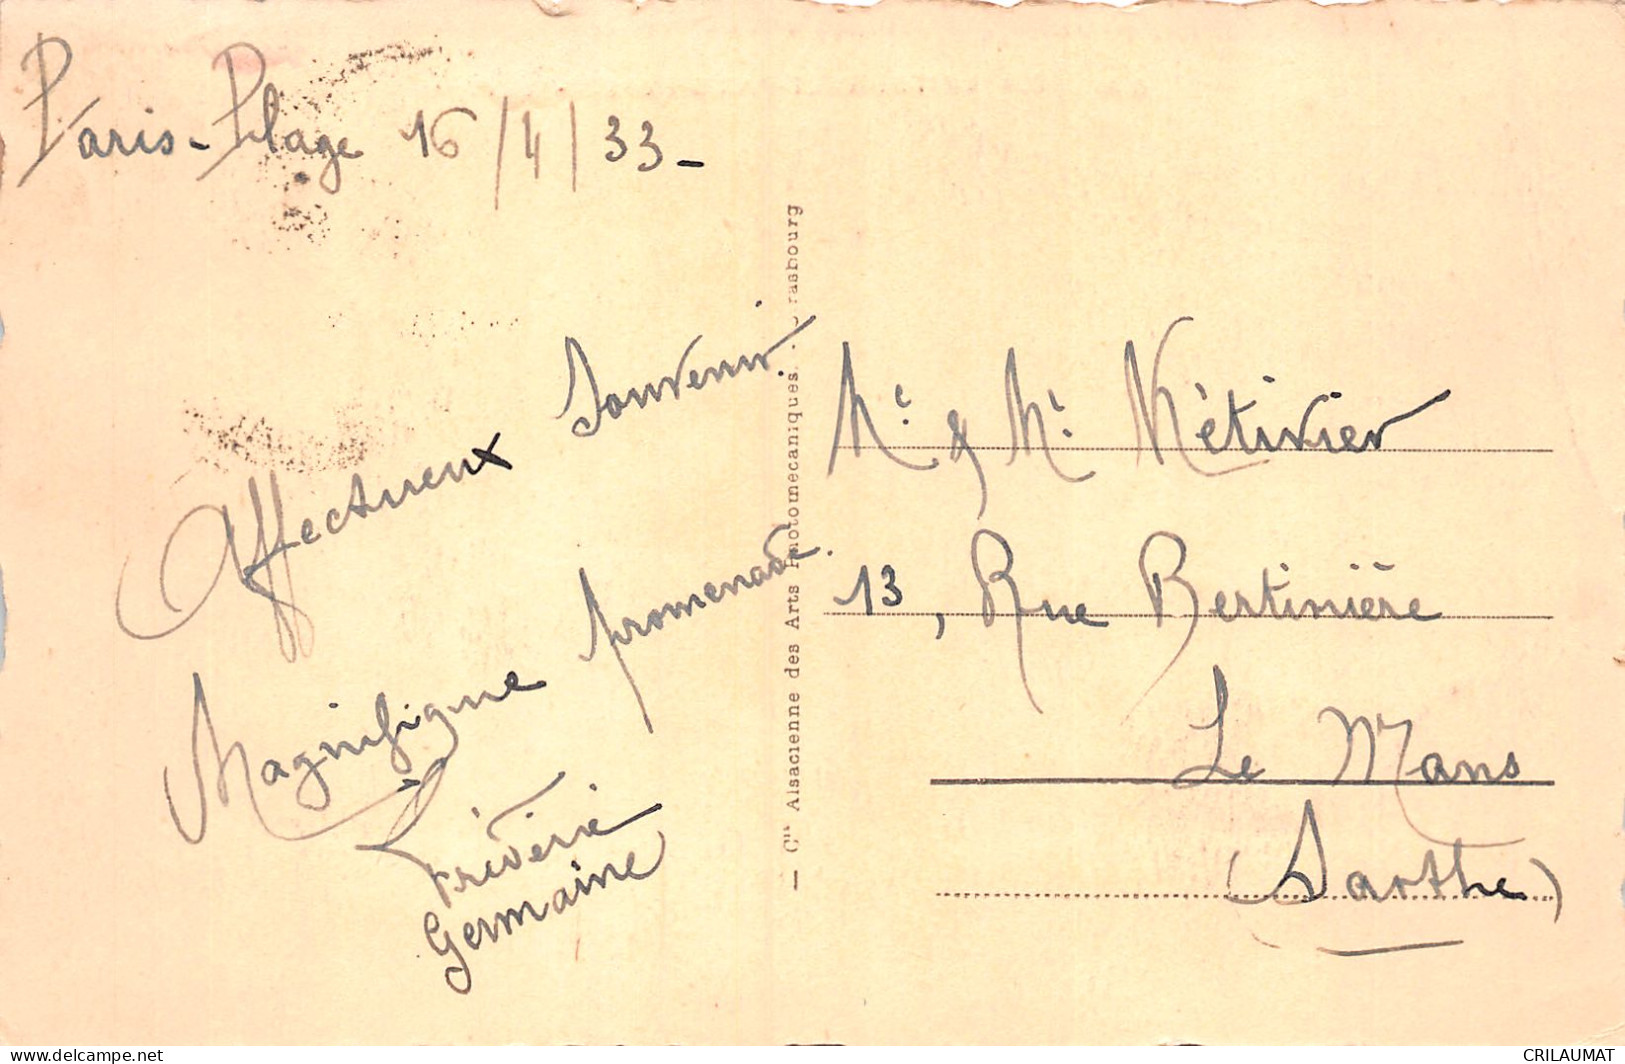 Paris-Plage 16/4/33-
Affectueux Souvenir
Magnifique promenade.
Germaine
— Cie Alsacienne des Arts Photomecaniques
Me & Mr Métivier
13, Rue Bertinière
Le Mans
(Sarthe)
CRILAUMAT